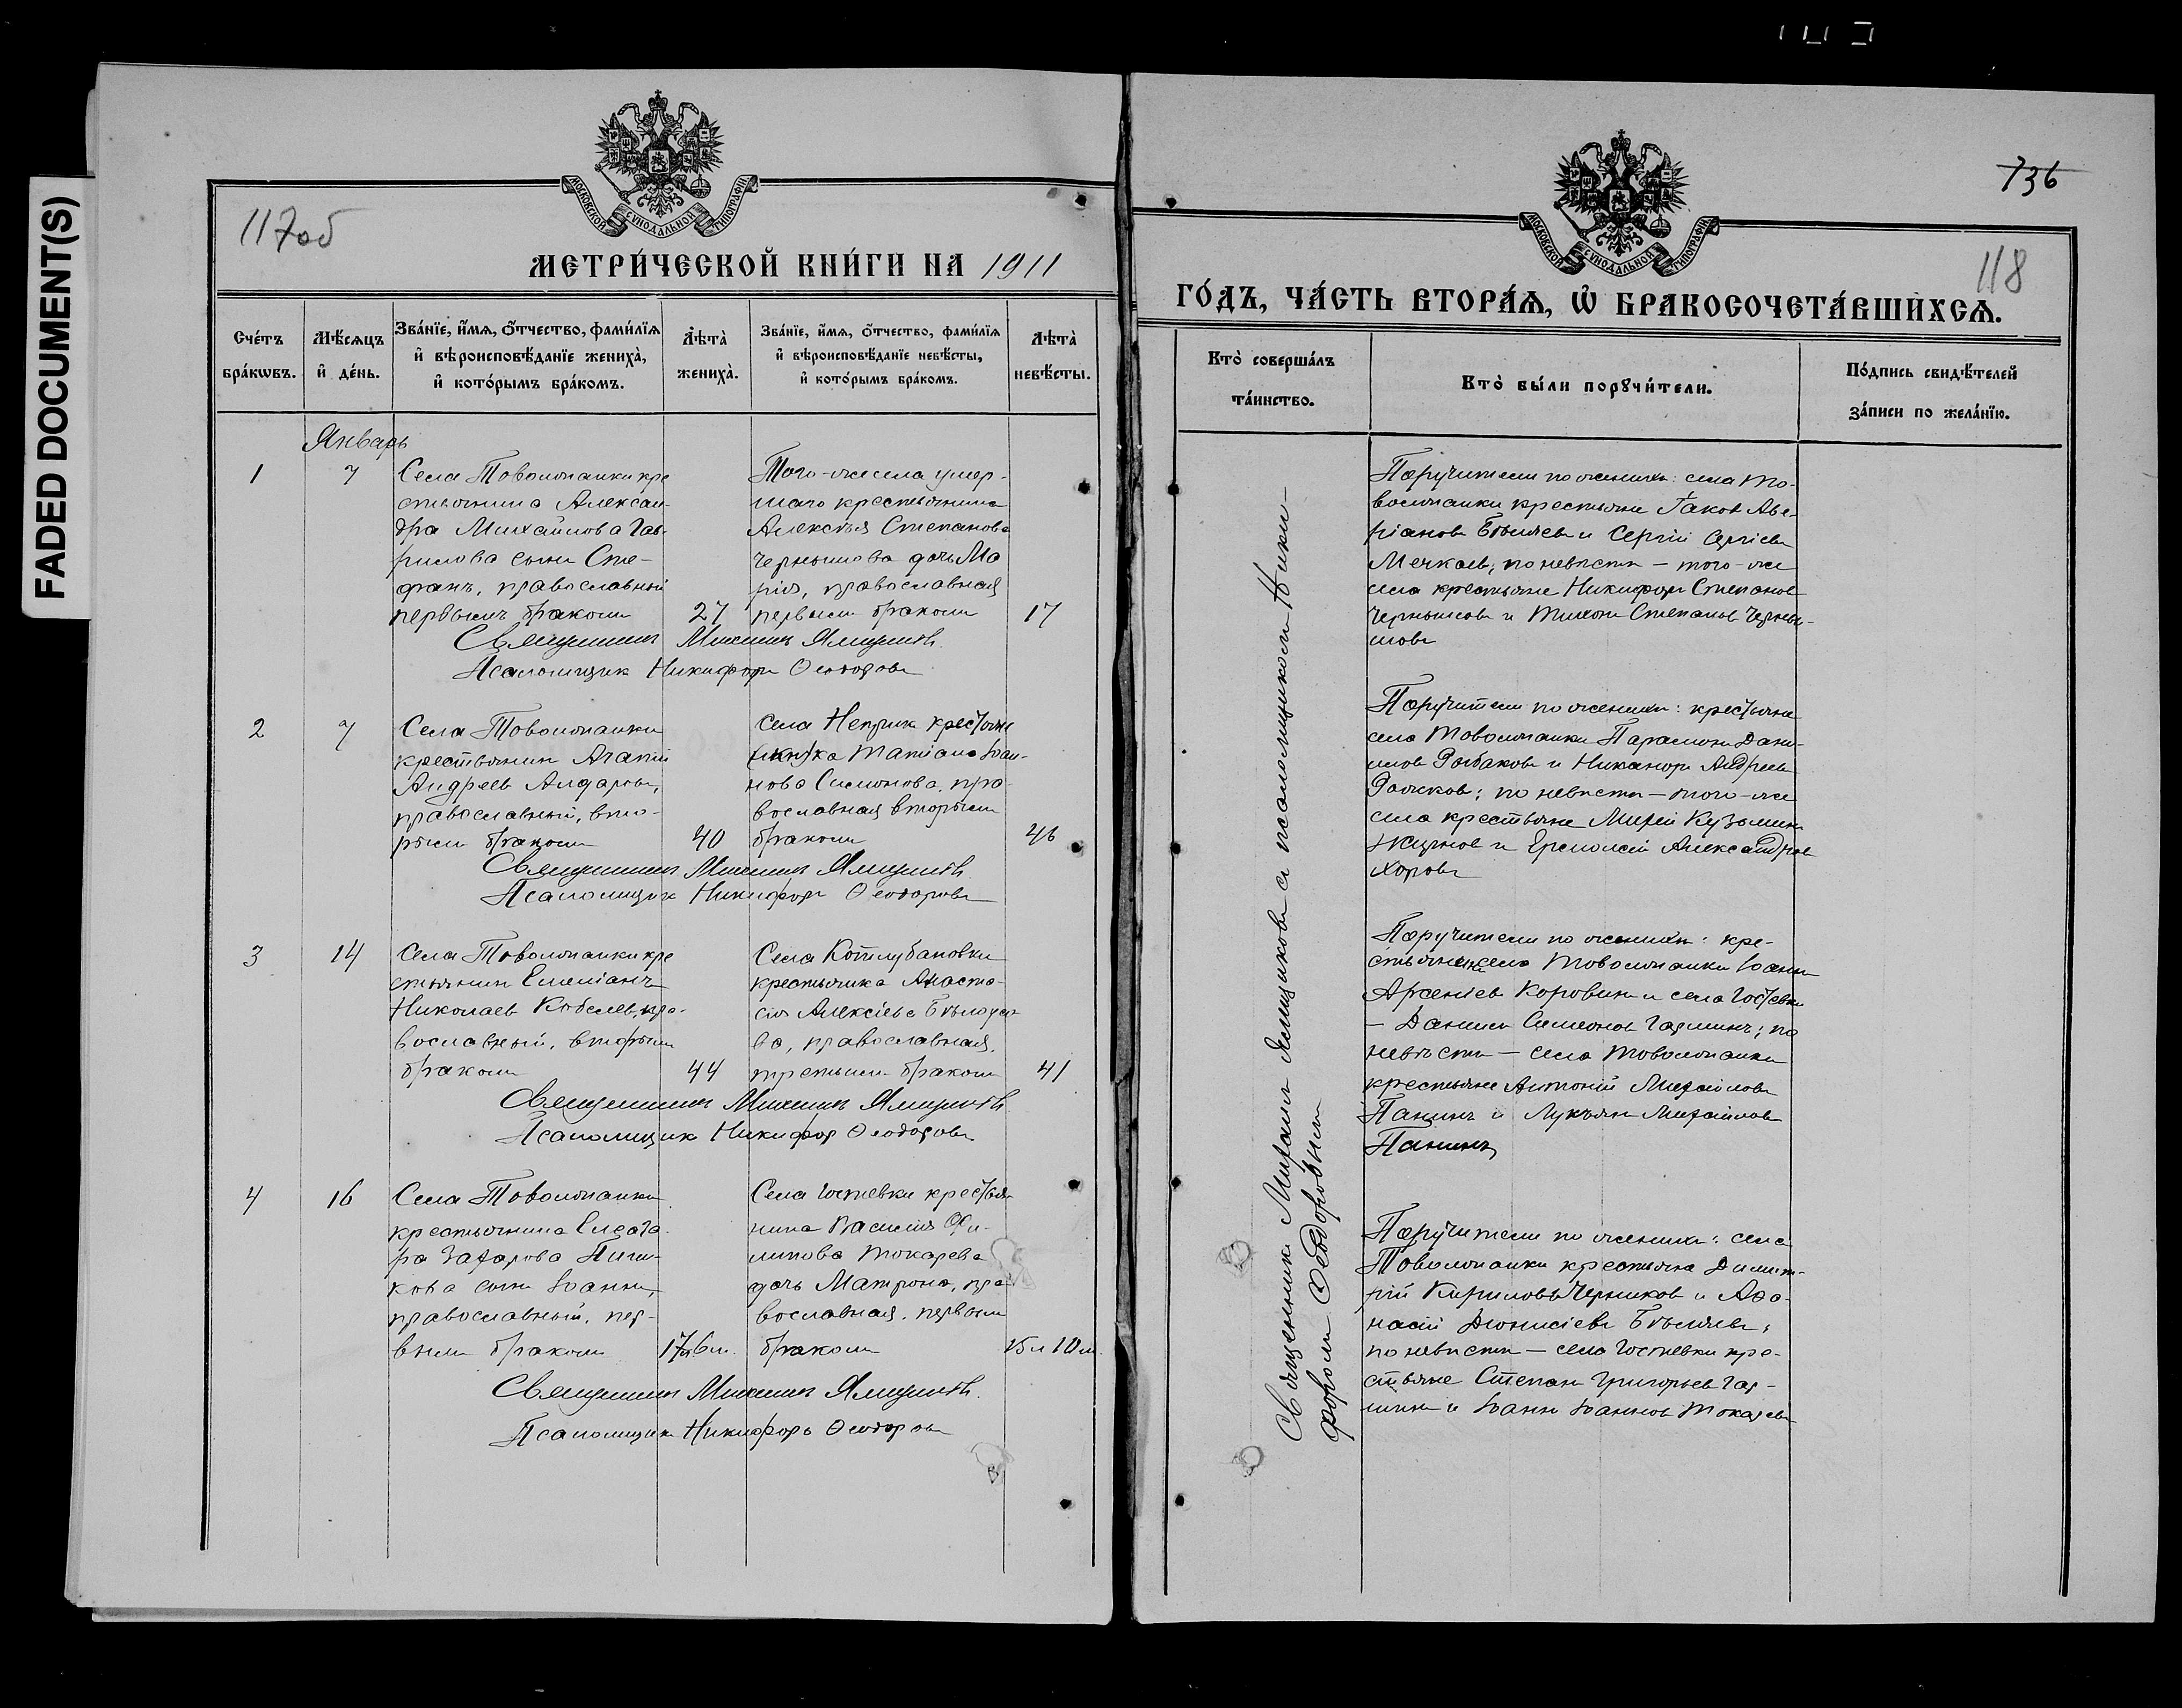 FADED DOCUMENT(S)
МОСКОВСКОЙ СѴНОДАЛЬНОЙ ТИПОГРАФІИ
117об
МЕТРИ́ЧЕСКОЙ КНИ́ГИ НА 1911
Сче́тъ бра́кѡвъ.
Мѣ́сяцъ и҆ де́нь.
Зва́нїе, и҆́мѧ, ѻ҆́тчество, фами́лїѧ
и҆ вѣроисповѣ́данїе жениха̀,
и҆ кото́рымъ бра́комъ.
Лѣ́та̀ жениха̀.
Зва́нїе, и҆́мѧ, ѻ҆́тчество, фами́лїѧ
и҆ вѣроисповѣ́данїе невѣ́сты,
и҆ кото́рымъ бра́комъ.
Лѣ́та̀ невѣ́сты.
Январь
1
7
Села Товолжанки кре
стьянина Алексан
дра Михайлова Гав-
рилова сынъ Сте-
фанъ, православный
первымъ бракомъ
27
Того-же села умер-
шаго крестьянина
Алексѣя Степанова
Чернышова дочь Ма
рія, православная
первымъ бракомъ
17
Священникъ Михаилъ Ямщиковъ
Псаломщикъ Никифоръ Ѳеодоровъ
2
7
Села Товолжанки
крестьянинъ Агапій
Андреевъ Алфаровъ,
православный, вто-
рымъ бракомъ
40
Села крестьян
ка Татіана Іоан-
нова Симонова, пра-
вославная вторымъ
бракомъ
46
Священникъ Михаилъ Ямщиковъ
Псаломщикъ Никифоръ Ѳеодоровъ
3
14
Села Товолжанки кре
стьянинъ Емеліанъ
Николаевъ Кобелевъ, пра-
вославный, вторымъ
бракомъ
44
Села Котлубановки
крестьянка Анаста-
сія Алексіева
ва, православная,
третьимъ бракомъ
41
Священникъ Михаилъ Ямщиковъ
Псаломщикъ Никифоръ Ѳеодоровъ
4
16
Села Товолжанки
крестьянина Елеаза-
ра Захарова
кова сынъ Іоаннъ,
православный, пер-
вымъ бракомъ
17л 6м.
Села Гостевки крестьян
нина Василія Фи-
липпова Токарева
дочь Матрона, пра-
вославная, первымъ
бракомъ
15 л 10 м.
Священникъ Михаилъ Ямщиковъ
Псаломщикъ Никифоръ Ѳеодоровъ
736
МОСКОВСКОЙ СѴНОДАЛЬНОЙ ТИПОГРАФІИ
118
ГО́ДЪ, ЧА́СТЬ ВТОРА́Ѧ, Ѡ҆ БРАКОСОЧЕТА́ВШИХСѦ.
Кто̀ соверша́лъ та́инство.
Кто̀ бы́ли порꙋчи́тели.
По́дпись свидѣ́телей за́писи по жела́нїю.
Священникъ Михаилъ Ямщиковъ съ псаломщикомъ Ники-
форомъ Ѳеодоровымъ
Поручители по женихѣ: села То-
волжанки крестьяне Іаковъ Аве-
ріановъ Бѣляевъ и Сергій Сергіевъ
Мечкаевъ; по невѣстѣ — того-же
села крестьяне Никифоръ Степановъ
Чернышовъ и Тихонъ Степановъ Черны-
шовъ
Поручители по женихѣ: крестьяне
села Товолжанки Парамонъ Дани-
ловъ Рыбаковъ и Никаноръ Андреевъ
по невѣстѣ — того-же
села крестьяне Кузьминъ
и Ермолай Александровъ
Хоровъ
Поручители по женихѣ: кре-
стьяне села Товолжанки Іоаннъ
Арсеніевъ Коровинъ и села Гостевки
— Даніилъ Симеоновъ Гаршинъ; по
невѣстѣ — села Товолжанки
крестьяне Антоній Михайловъ
Панинъ и Лукьянъ Михайловъ
Панинъ
Поручители по женихѣ: села
Товолжанки крестьяне Димит-
рій Кириловъ Черниковъ и Афа-
насій Діонисіевъ Бѣляевъ;
по невѣстѣ — села Гостевки кре-
стьяне Степанъ Григорьевъ Гар-
шинъ и Іоаннъ Іоанновъ Токаревъ